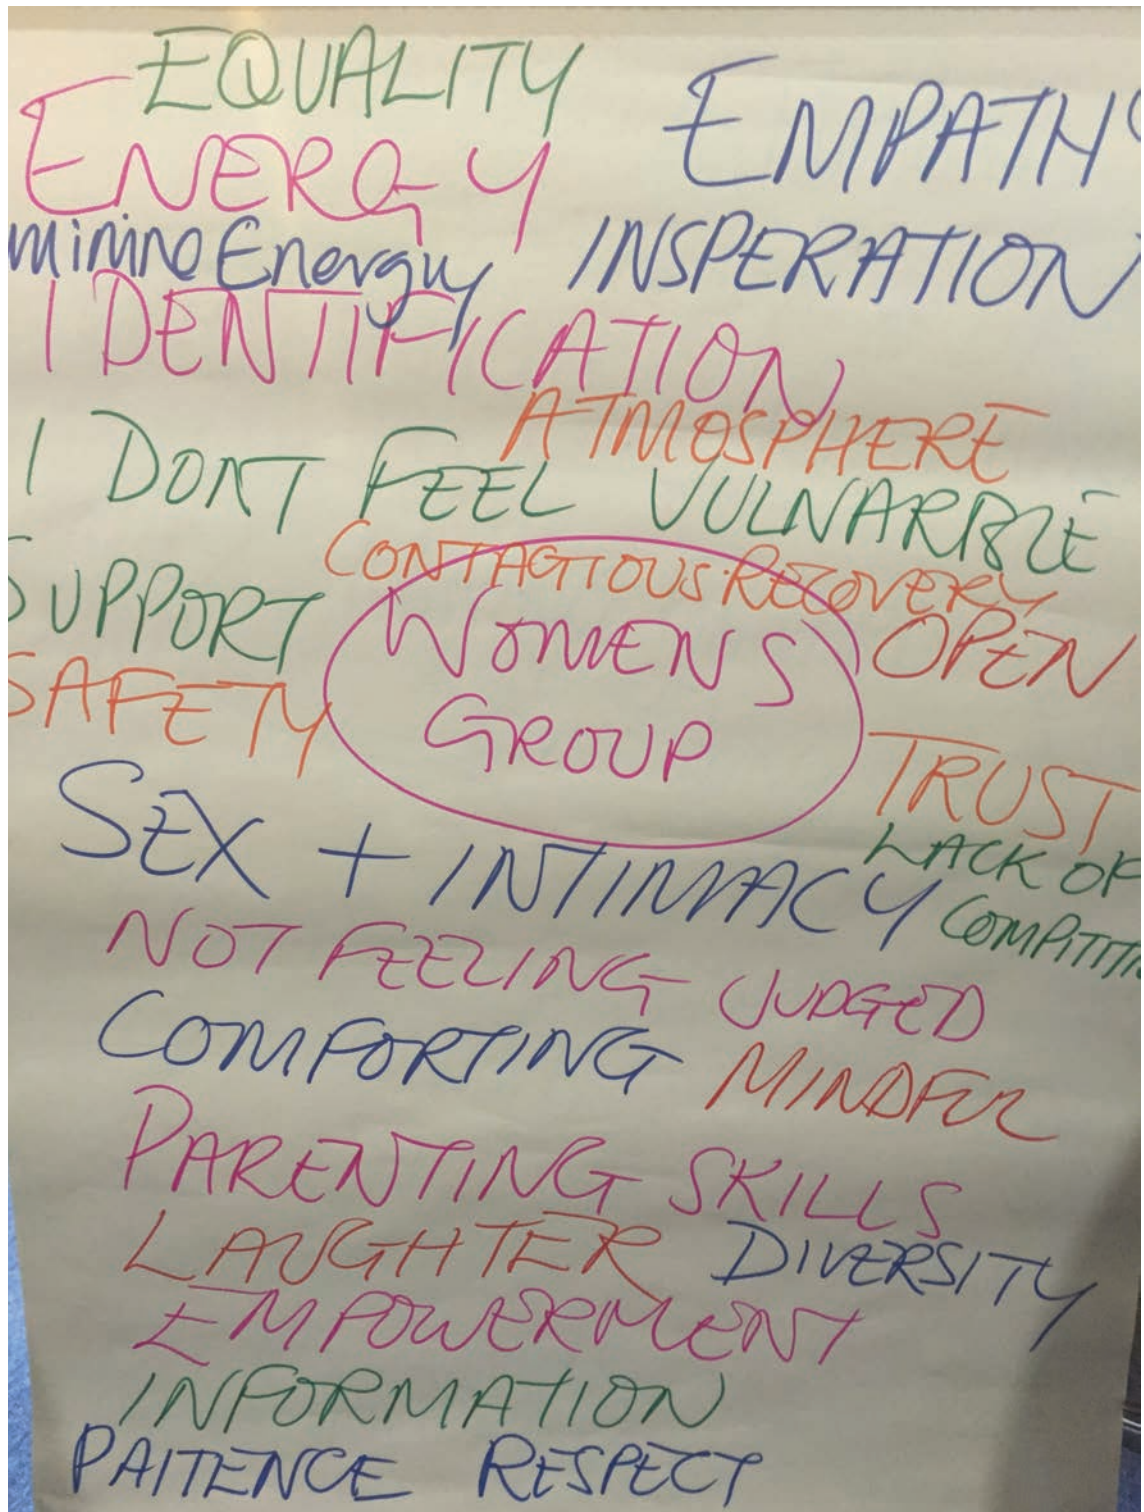 EQUALITY
EMPATHY
ENERGY
minine Energy
INSPERATION
IDENTIFICATION
ATMOSPHERE
I DONT FEEL VULNARBLE
CONTAGIOUS RECOVERY
SUPPORT
WOMENS
OPEN
SAFETY
GROUP
TRUST
SEX + INTIMACY
LACK OF
COMPITITI
NOT FEELING JUDGED
COMFORTING MINDFUL
PARENTING SKILLS
LAUGHTER DIVERSITY
EMPOWERMENT
INFORMATION
PAITENCE RESPECT